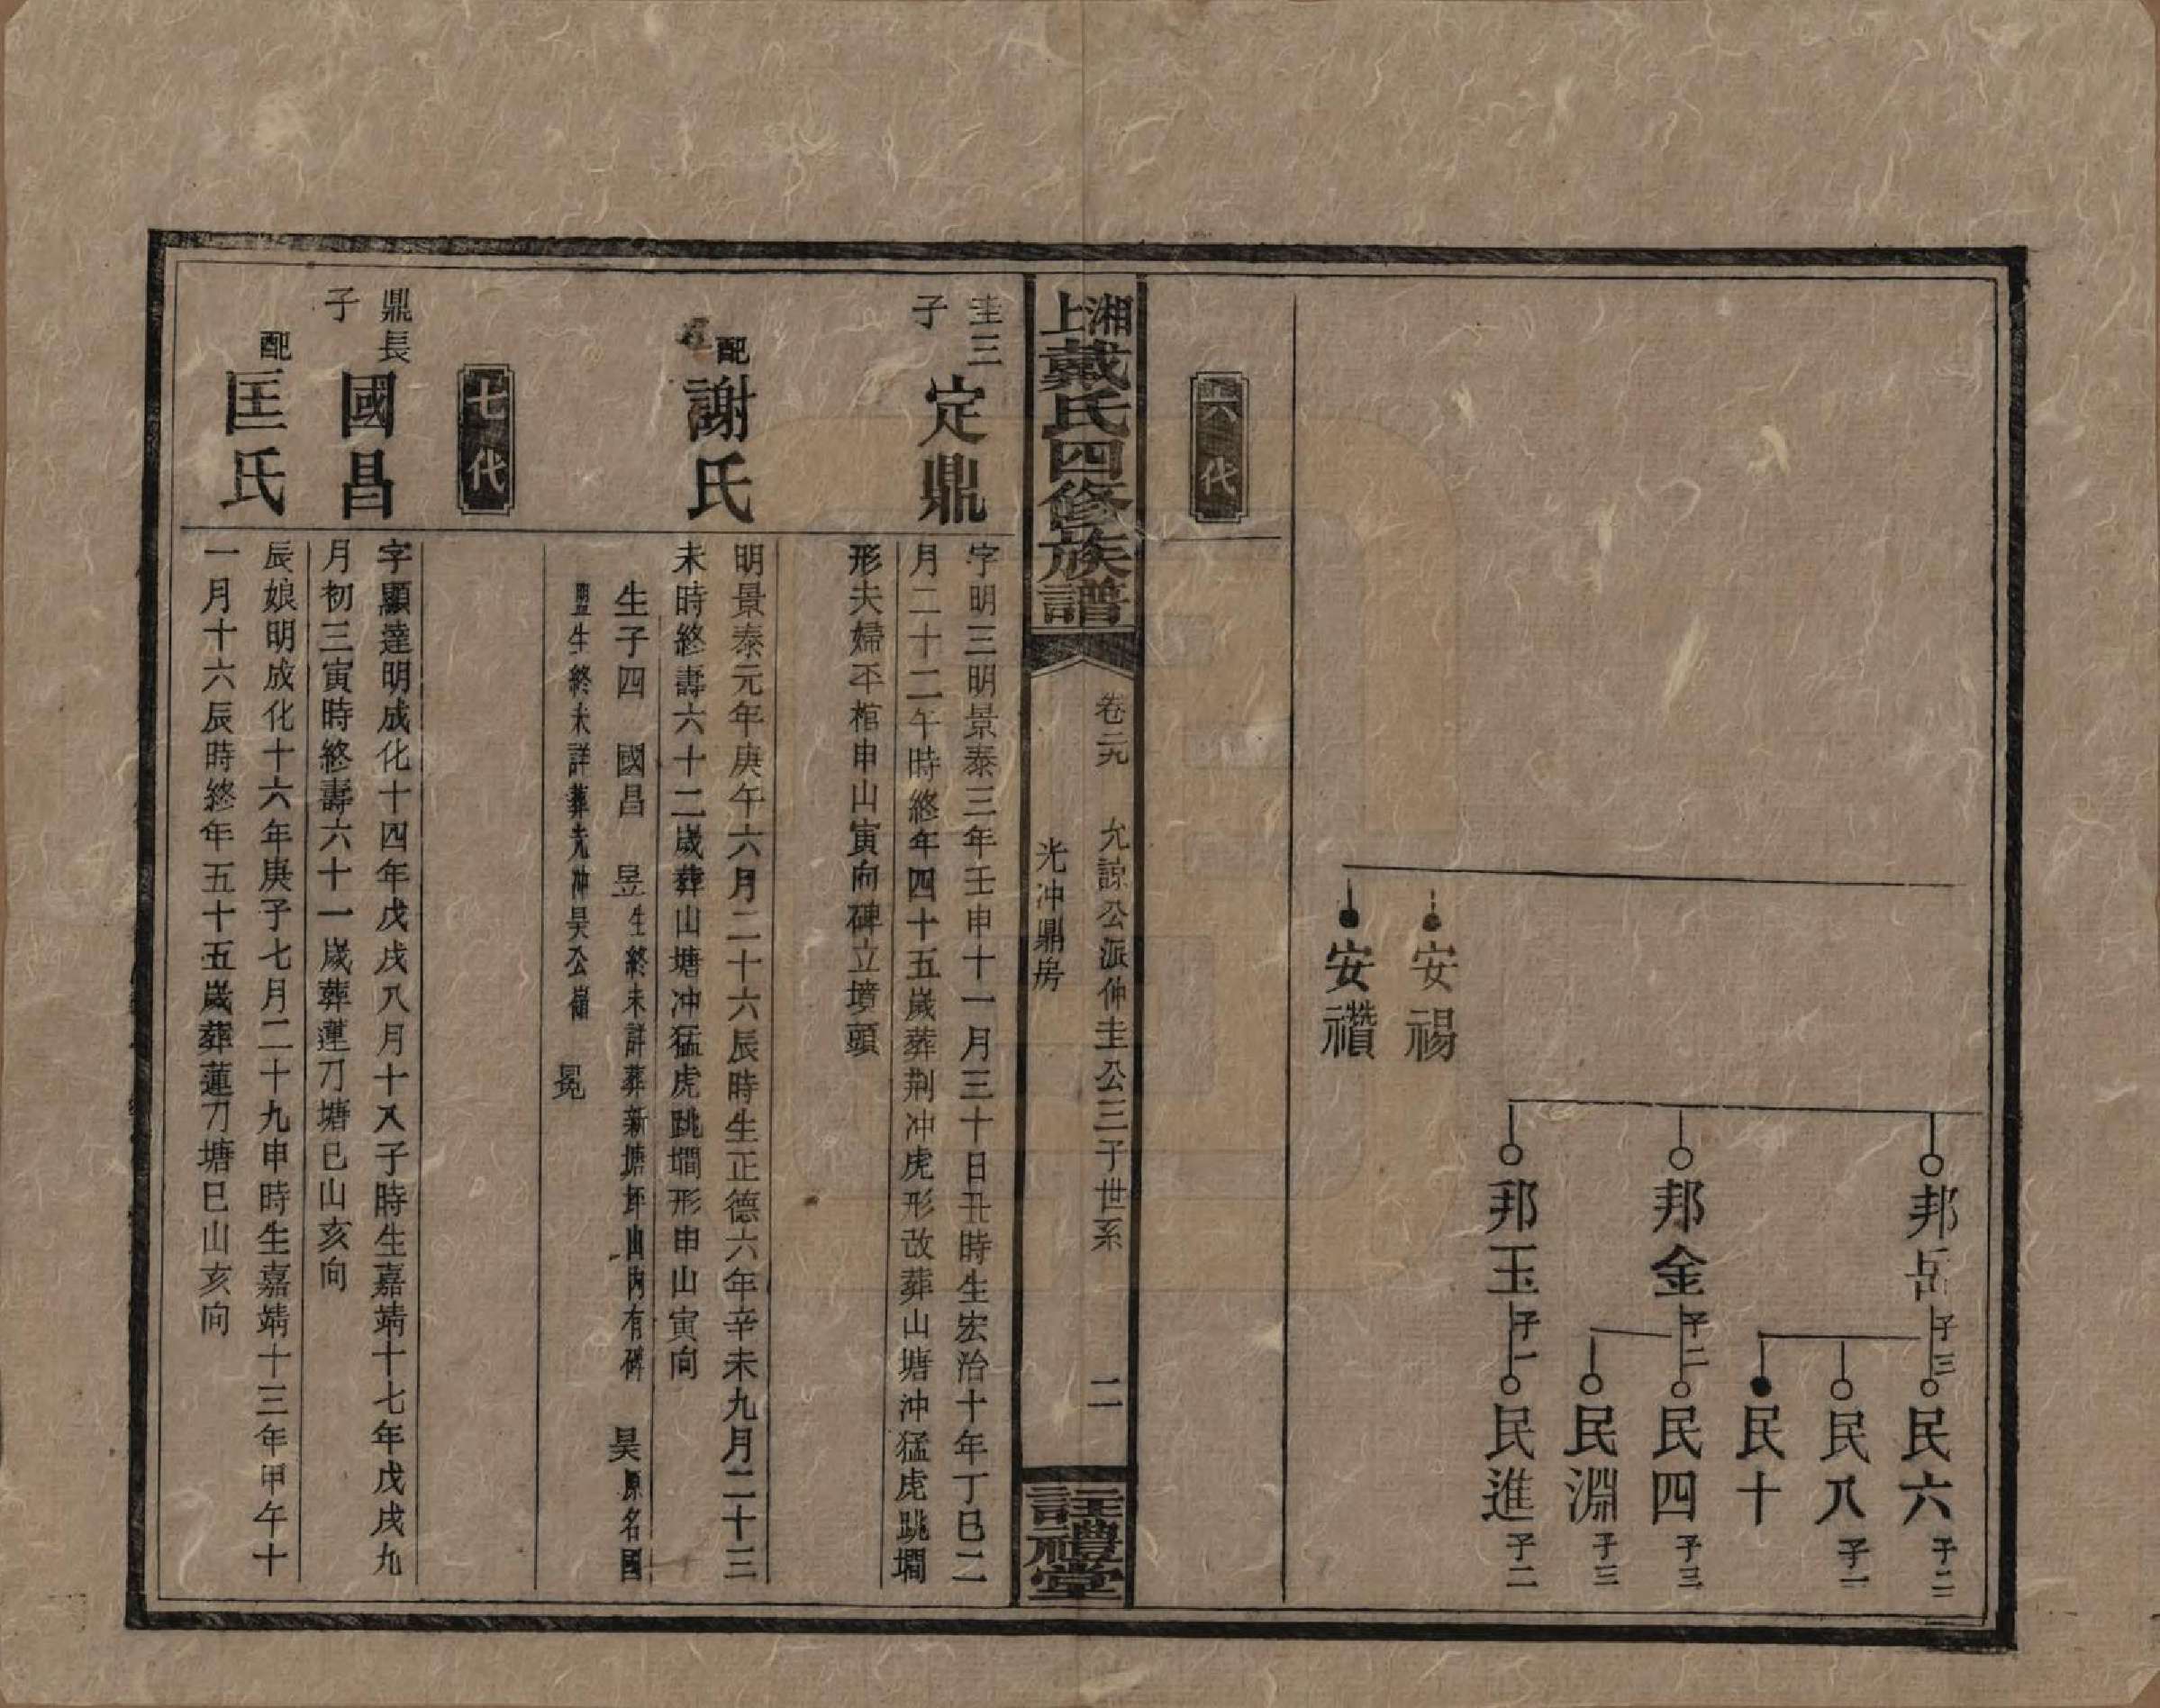 邦岳子三
民六子二
民八子一
民十
邦金子二
民四子三
民淵子三
邦玉子一
民進子二
安禓
安禶
六代
湘上戴氏四修族譜
卷二九 允諒公派仲圭公三子世系 二
光冲鼎房
註禮堂
圭三子 定鼎
字明三明景泰三年壬申十一月三十日丑時生宏治十年丁巳二
月二十二午時終年四十五歲葬荆冲虎形改葬山塘冲猛虎跳㵎
形夫婦丕棺申山寅向碑立墳頭
配 謝氏
明景泰元年庚午六月二十六辰時生正德六年辛未九月二十三
未時終壽六十二歲葬山塘冲猛虎跳㵎形申山寅向
生子四 國昌 昱生終未詳葬新塘坪山內有碑 昊原名國
盟生終未詳葬光冲昊公嶺 冕
七代
鼎長子 國昌
字顯達明成化十四年戊戌八月十八子時生嘉靖十七年戊戌九
月初三寅時終壽六十一歲葬蓮刀塘巳山亥向
配 匡氏
辰娘明成化十六年庚子七月二十九申時生嘉靖十三年甲午十
一月十六辰時終年五十五歲葬蓮刀塘巳山亥向